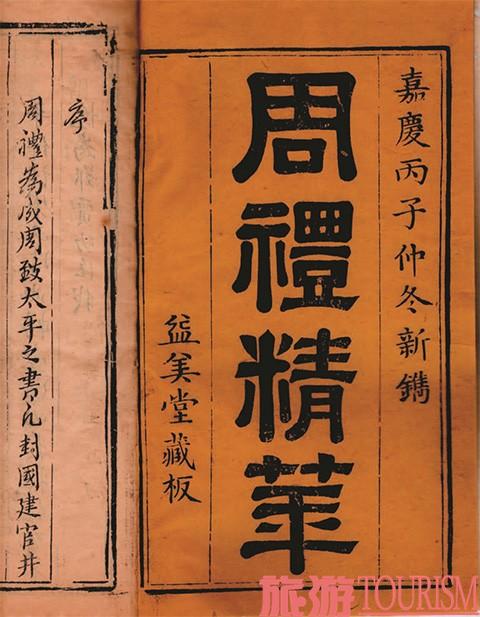 嘉慶丙子仲冬新鐫
周禮精華
益美堂藏板
序
周禮為成周致太平之書凡封國建官井
旅游TOURISM